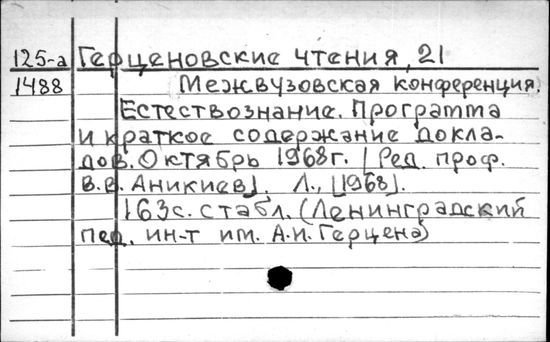 125-а Герценовские чтения, 21
1488 Межвузовская конференция.
Естествознание. Программа
и краткое содержание докла-
дов. Октябрь 1968г. | Ред. проф.
В.В. Аникиев]. Л., [1968].
163с. с табл. (Ленинградский
пед. ин-т им. А.И. Герцена)